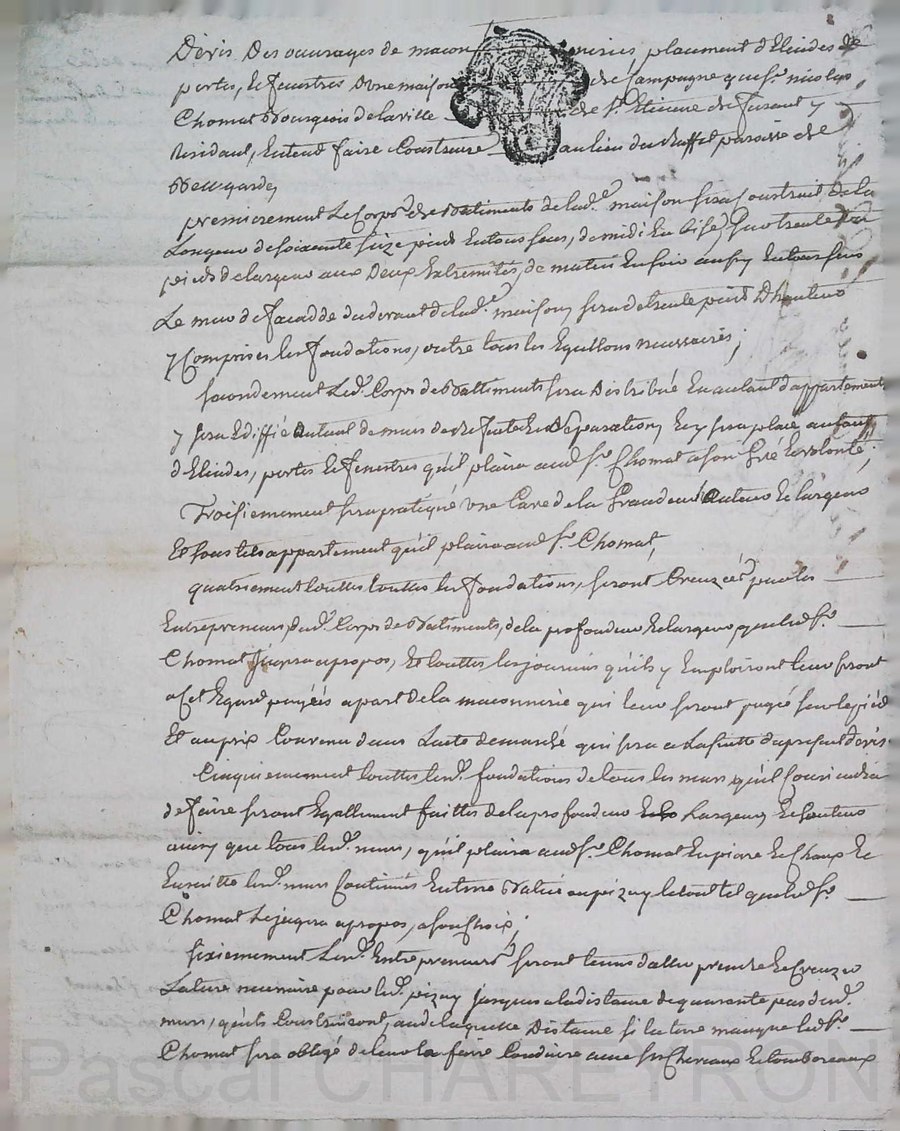 Devis Des ouvrages de macon neries placement d'Eliudes de
portes, & fenestres D'une maison de Campagne que sr. nicolas
Chomat Bourgeois de la ville de St. Etienne de furant y
Residant, Entend faire Construire au lieu du Buffet paroisse de
premierement Le Corps de Battiments de lad. maison sera Construit de la
Longeur de soixante seize pieds En tous sens, de midi En bise, sur trente six
pieds de largeur aux Deux Extremités, de matin En soir aussy En tous sens
Le mur de facadde du devant de lad. maison sera de trente pieds D'hauteur
y Comprises les fondations, outre tous les Eguillons necessaires;
secondement Led. Corps de Battiments sera Distribué En autant d'appartements
y sera Ediffié autant de murs de refante & De separation, & y sera placé autant
d'Eliudes, portes & fenestres qu'il plaira aud. sr. Chomat a son Gré & volonté;
Troisiemement sera pratiqué une Cave de la Grandeur hauteur & largeur
Et sous tels appartement qu'il plaira aud. sr. Chomat,
quatriement touttes touttes les fondations, seront Creuzées par les
Entrepreneurs, dud. Corps de Battiments, de la profondeur & largeur que led. sr.
Chomat Jugera apropos, & touttes les journées qu'ils y Emploiront leur seront
a Cet Egard payées apart de la maconnerie qui leur seront payé sur le pied
Et au prix Convenu dans Lacte de marché qui sera a La suitte du present Devis
Cinquiemement touttes lesd. fondations de tous les murs qu'il Conviendra
de faire seront Egallement faittes de la profondeur Largeur, & hauteur
ainsy que tous lesd. murs, qu'il plaira aud. sr. Chomat En pierre & Chaux &
Ensuitte lesd. murs Continués En terre Battue ou pizay le tout tel que led. sr.
Chomat Le jugera apropos, a son Choix;
sixiemement Lesd. Entrepreneurs seront tenus d'aller prendre & Creuzer
La terre necessaire pour led. pizay jusques a la distance de quarante pas desd.
murs, qu'ils Construiront, au dela quelle Distance si la terre manque led. sr.
Chomat sera obligé de leur la faire Conduire avec ses Chevaux & tombereaux
Pascal CHAREYRON